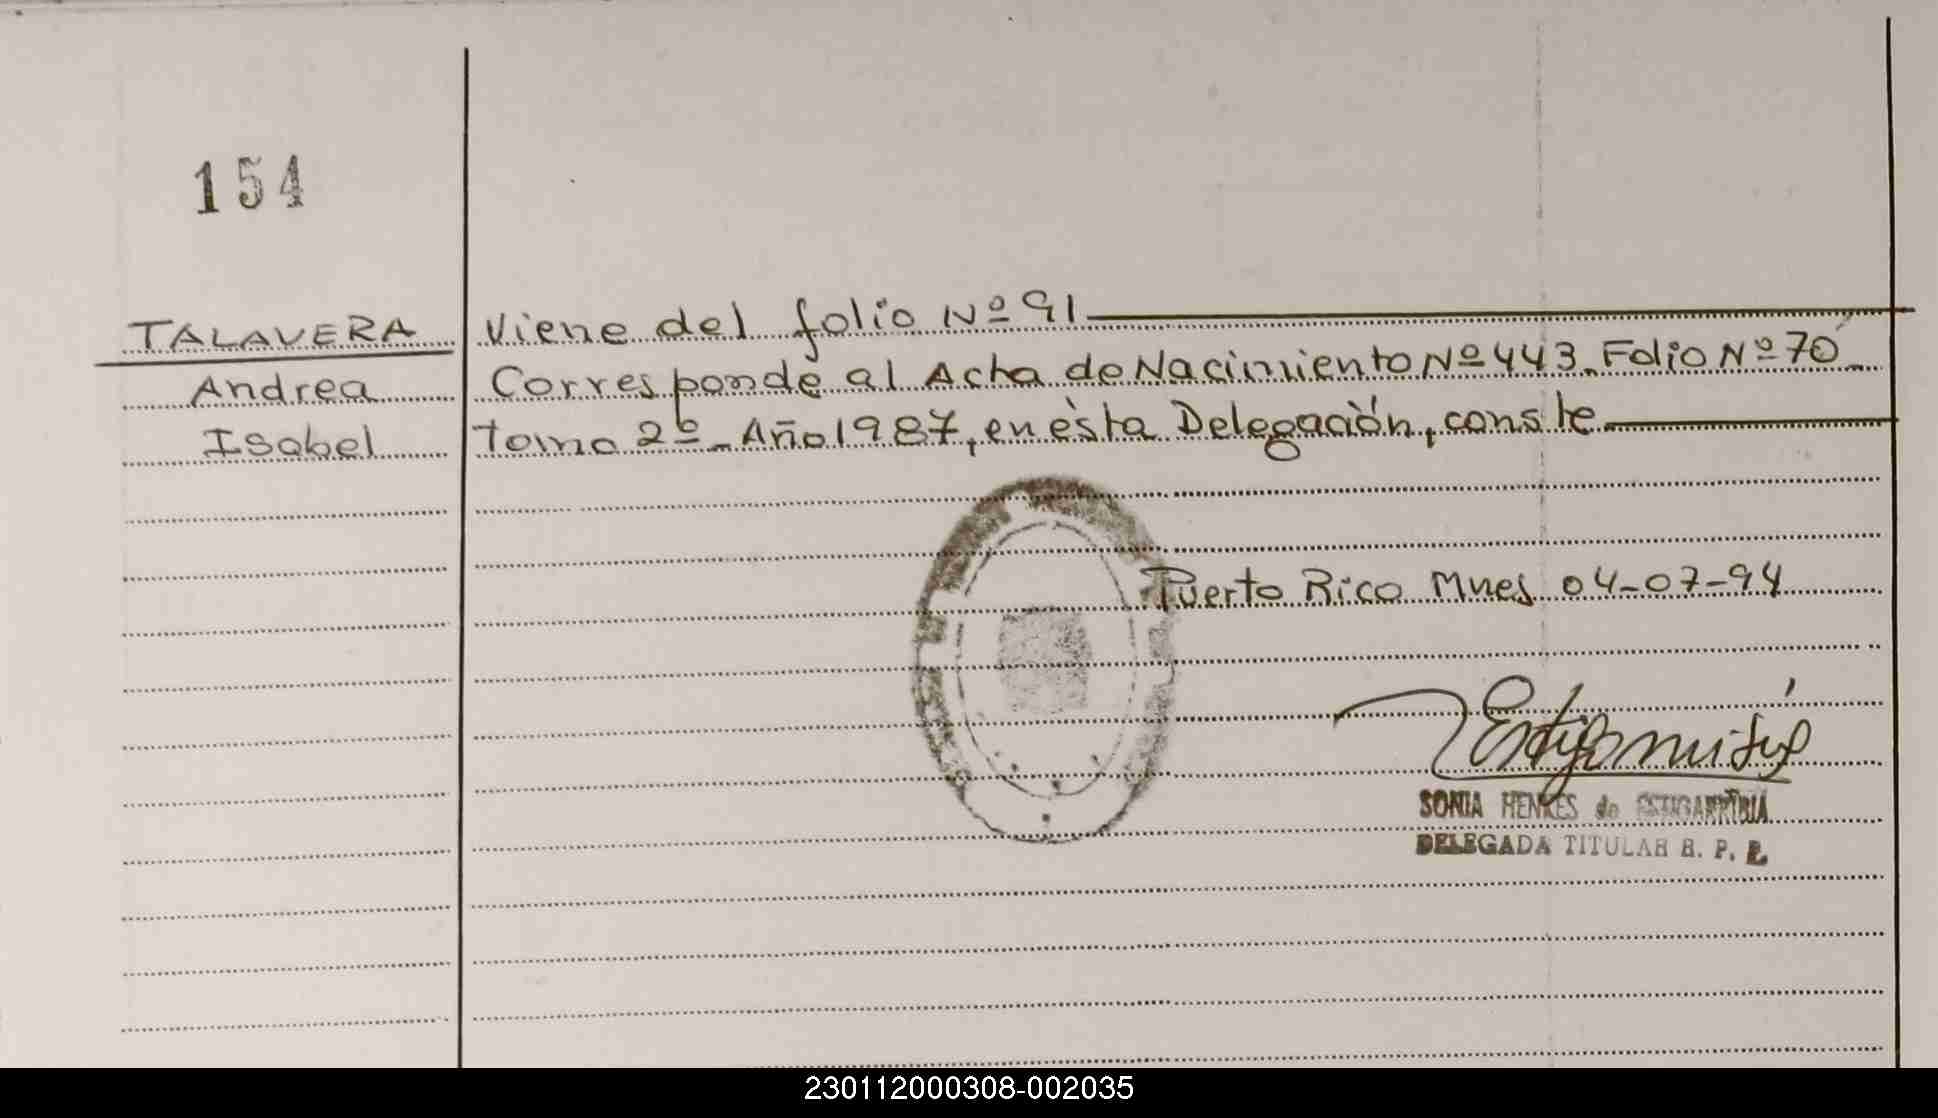 154
TALAVERA
Andrea
Isabel
Viene del folio Nº 91
Corresponde al Acta de Nacimiento Nº 443. Folio Nº 70
Tomo 2º- Año 1987, en èsta Delegaciòn, conste
Puerto Rico Mnes 04-07-94
SONIA HENKES de ESTIGARRIBIA
DELEGADA TITULAR R. P. P.
230112000308-002035